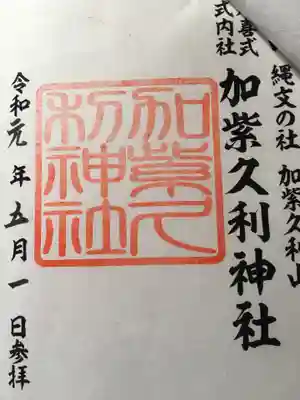 縄文の社 加紫久利山
喜式
式内社
加紫久利神社
加紫久
利神社
令和元年五月一日参拝